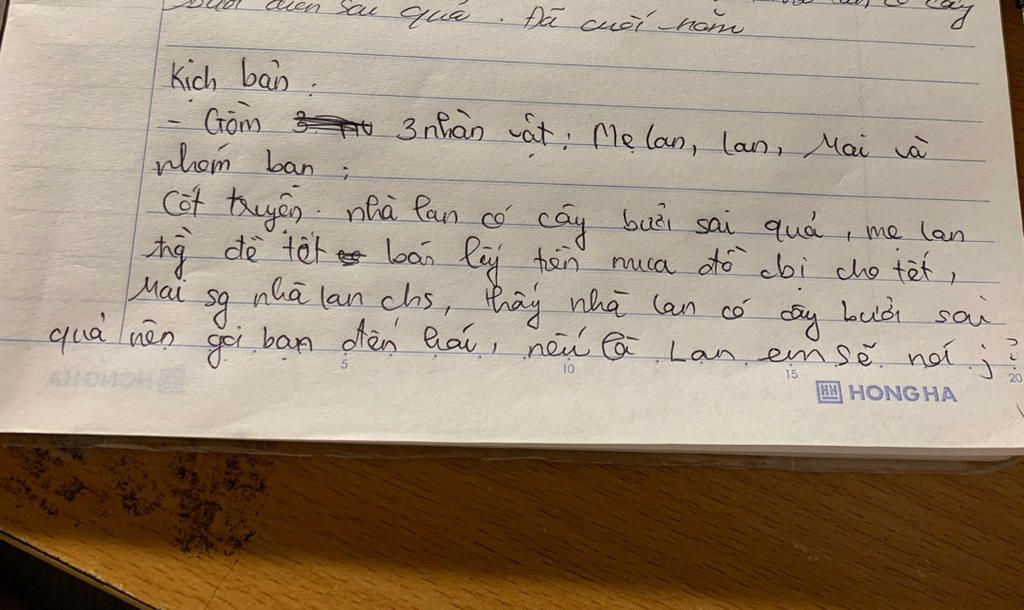 sai quả. Đã cuối năm
Kịch bản:
- Gồm 3 nhân vật: Mẹ lan, lan, Mai và
nhóm bạn;
Cốt truyện. nhà lan có cây bưởi sai quả, mẹ lan
để tết bán lấy tiền mua đồ cbị cho tết,
Mai sg nhà lan chs, thấy nhà lan có cây bưởi sai
quả nên gọi bạn đến hái, nếu là Lan em sẽ nói j
5 10 15 20
HONG HA